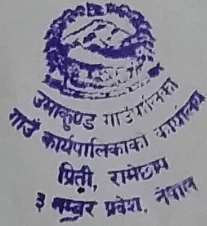 उमाकुण्ड गाउँपालिका
गाउँ कार्यपालिकाको कार्यालय
प्रिती, रामेछाप
३ नम्बर प्रदेश, नेपाल